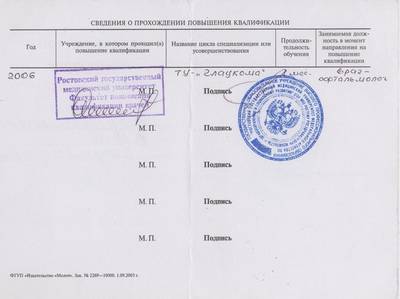 СВЕДЕНИЯ О ПРОХОЖДЕНИИ ПОВЫШЕНИЯ КВАЛИФИКАЦИИ
Год
Учреждение, в котором проходил(а)
повышение квалификации
Название цикла специализации или
усовершенствования
Продолжи-
тельность
обучения
Занимаемая долж-
ность в момент
направления на
повышение
квалификации
2006
ТУ-„Глаукома"
2 мес.
врач-
офтальмолог
Ростовский государственный
медицинский университет
Факультет повышения
квалификации врачей
М.П.
Подпись
М. П.
Подпись
М. П.
Подпись
М. П.
Подпись
М. П.
Подпись
ФГУП «Издательство «Молот». Зак. № 2269—10000. 1.09.2003 г.